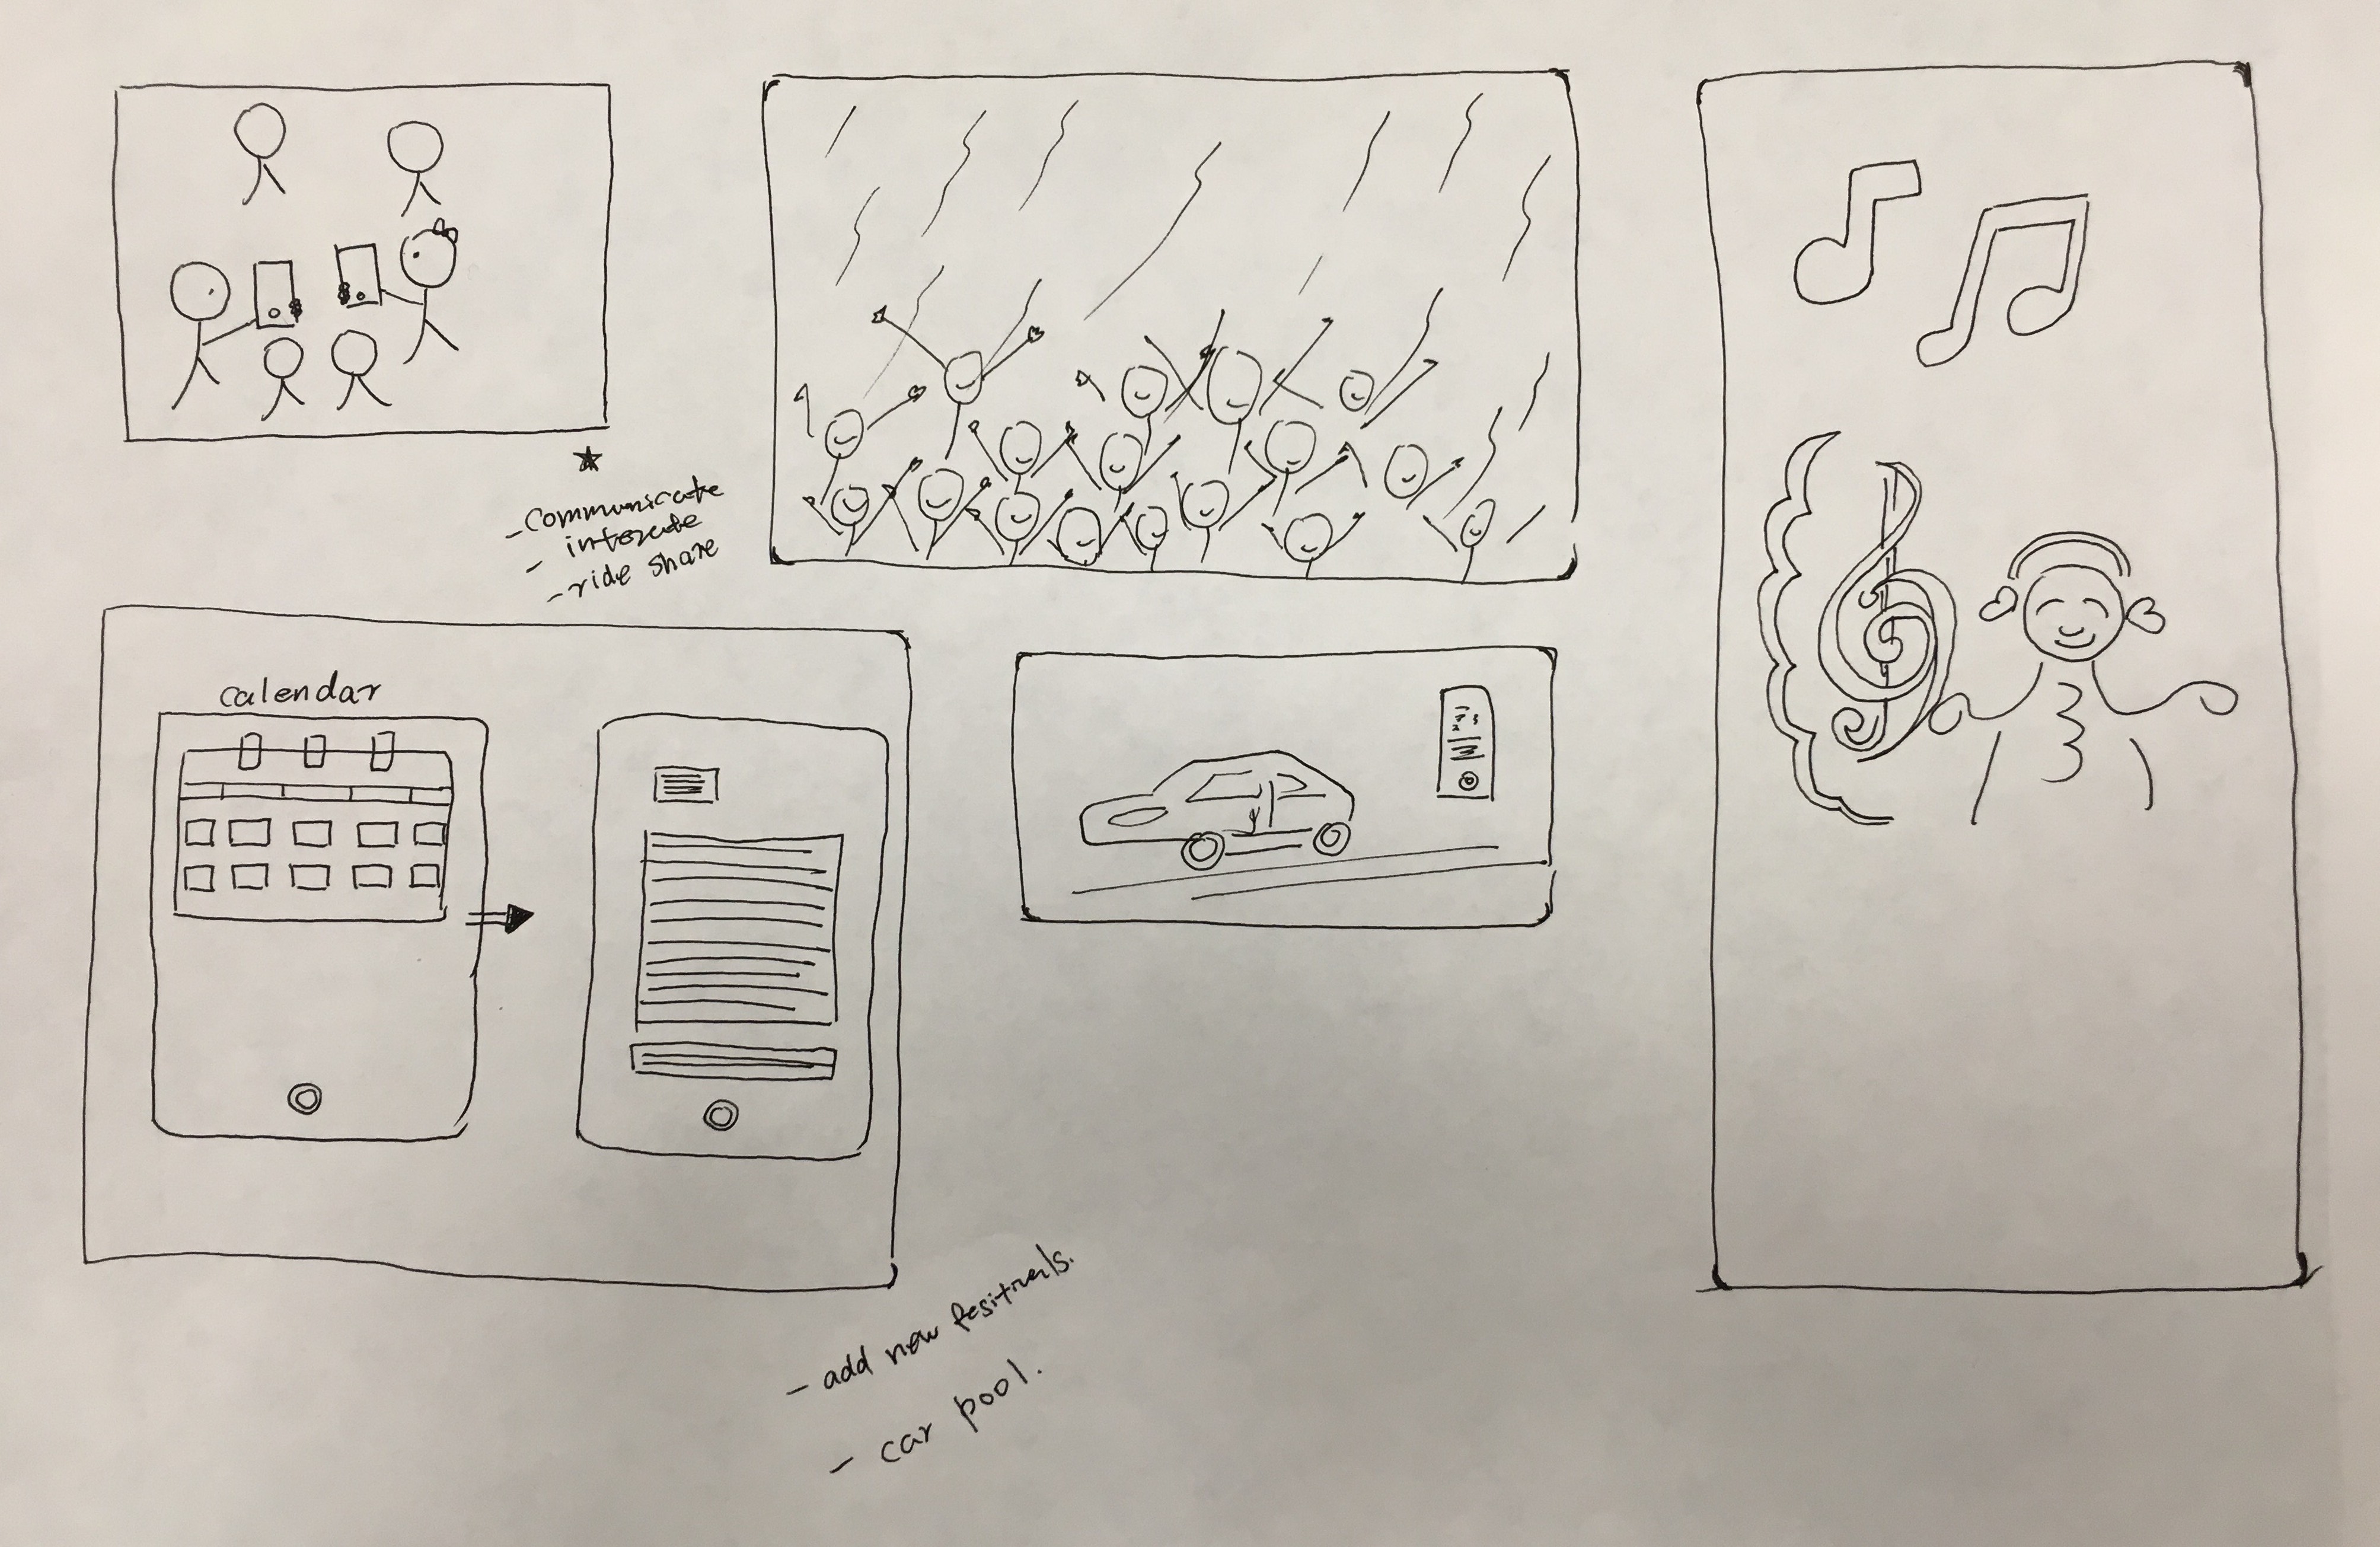 - communicate
- interate
- ride share
calendar
- add new fesitvals.
- car pool.